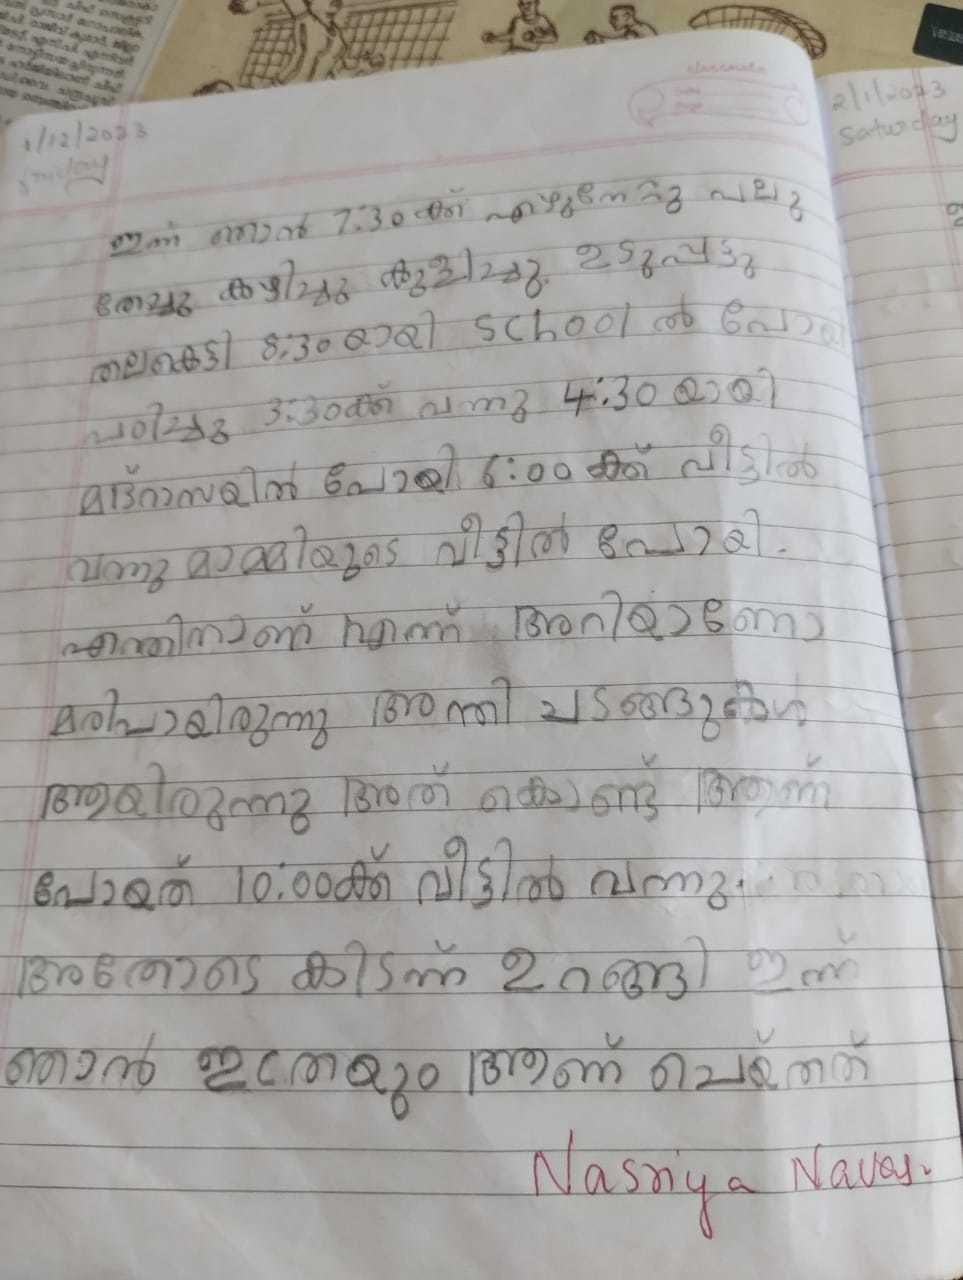 1/12/2023
friday
ഇന്ന് ഞാൻ 7:30 ക്ക് എഴുന്നേറ്റു പല്ലു
തേച്ചു കഴിച്ചു കുളിച്ചു ഉടുപ്പിട്ടു
തലകെട്ടി 8:30 യായി School ൽ പോയി
പഠിച്ചു 3:30ക്ക് വന്നു 4:30 യായി
മദ്റസയിൽ പോയി 6:00 ക്ക് വീട്ടിൽ
വന്നു മാമിയുടെ വീട്ടിൽ പോയി.
എന്തിനാണ് എന്ന് അറിയാണോ
മരിപായിരുന്നു അന്തി ചടങ്ങുകൾ
ആയിരുന്നു അത് കൊണ്ട് ആണ്
പോയത് 10:00ക്ക് വീട്ടിൽ വന്നു.
അതോടെ കിടന്ന് ഉറങ്ങി ഇന്ന്
ഞാൻ ഇത്രയും ആണ് ചെയ്തത്
Nasriya Navas.
classmate
2/1/2023
Saturday